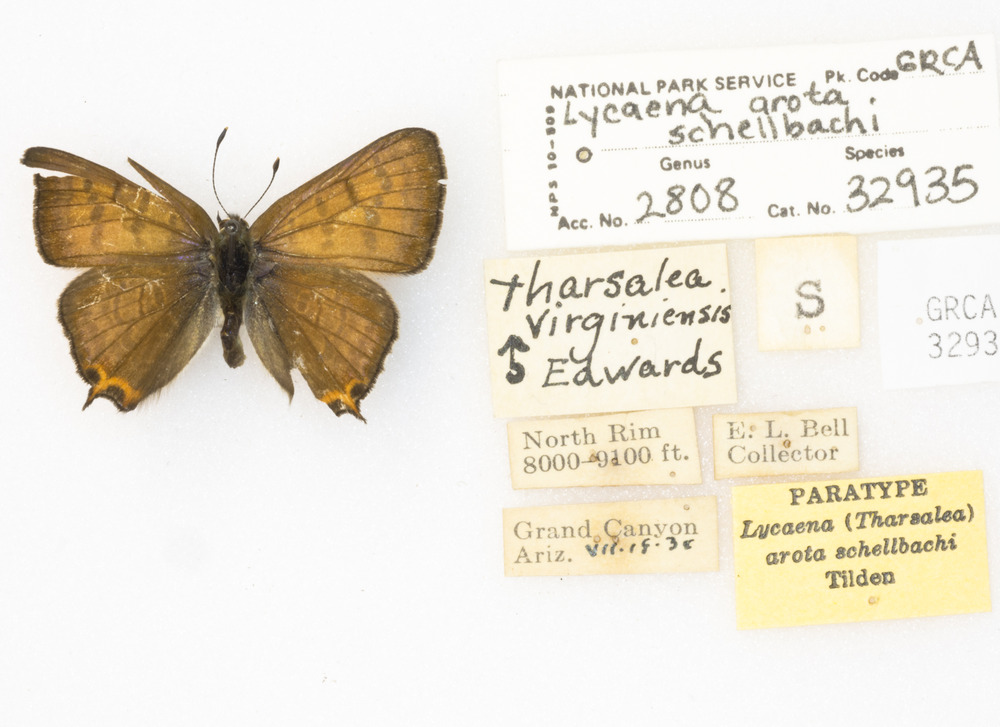 NATIONAL PARK SERVICE Pk. Code GRCA
Lycaena arota
schellbachi
Genus Species
Acc. No. 2808 Cat. No. 32935
NPS 10-509
Tharsalea.
virginiensis
Edwards
S
GRCA
3293
North Rim
8000-9100 ft.
E. L. Bell
Collector
Grand Canyon
Ariz.
PARATYPE
Lycaena (Tharsalea)
arota schellbachi
Tilden